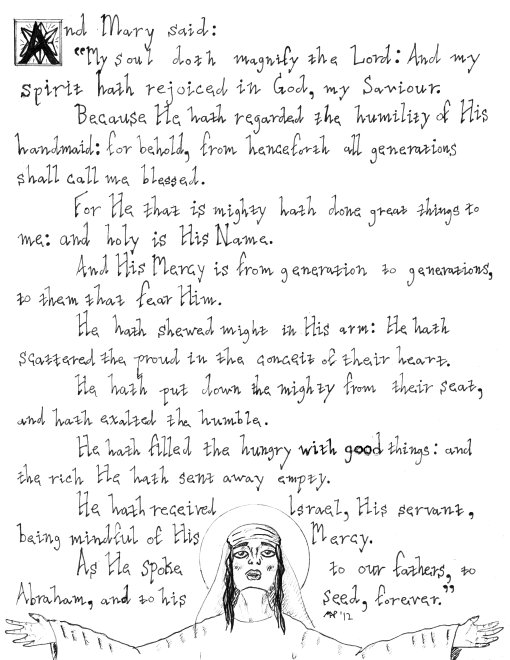 And Mary said:
"My soul doth magnify the Lord: And my
spirit hath rejoiced in God, my Saviour.
Because He hath regarded the humility of His
handmaid: for behold, from henceforth all generations
shall call me blessed.
For He that is mighty hath done great things to
me: and holy is His Name.
And His Mercy is from generation to generations,
to them that fear Him.
He hath shewed might in His arm: He hath
scattered the proud in the conceit of their heart.
He hath put down the mighty from their seat,
and hath exalted the humble.
He hath filled the hungry with good things: and
the rich He hath sent away empty.
He hath received Israel, His servant,
being mindful of His Mercy.
As He spoke to our fathers, to
Abraham, and to his seed, forever."
'12